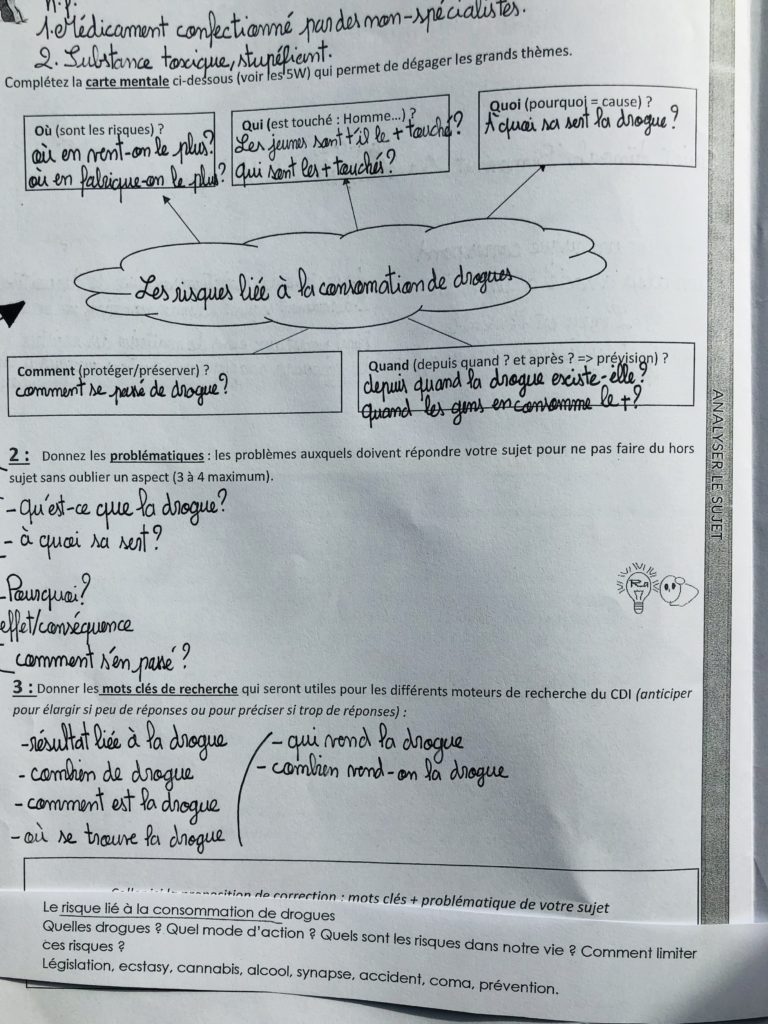 n.f.
1. Médicament confectionné par des non-spécialistes.
2. Substance toxique, stupéfient.
Complétez la carte mentale ci-dessous (voir les 5W) qui permet de dégager les grands thèmes.
Où (sont les risques) ?
où en vent-on le plus?
où en fabrique-on le plus?
Qui (est touché : Homme...) ?
Les jeunes sont t'il le + touché?
qui sont les + touchés?
Quoi (pourquoi = cause) ?
À quoi sa sent la drogue?
Les risques liée à la consomation de drogues
Comment (protéger/préserver) ?
comment se passé de drogue?
Quand (depuis quand ? et après ? => prévision) ?
depuis quand la drogue existe-elle?
quand les gens en consomme le +?
2 : Donnez les problématiques : les problèmes auxquels doivent répondre votre sujet pour ne pas faire du hors
sujet sans oublier un aspect (3 à 4 maximum).
- qu'est-ce que la drogue?
- à quoi sa sert?
- Pourquoi?
effet/conséquence
comment s'en passé?
3 : Donner les mots clés de recherche qui seront utiles pour les différents moteurs de recherche du CDI (anticiper
pour élargir si peu de réponses ou pour préciser si trop de réponses) :
- résultat liée à la drogue
- combien de drogue
- comment est la drogue
- où se trouve la drogue
- qui vend la drogue
- combien vend-on la drogue
ANALYSER LE SUJET
proposition de correction : mots clés + problématique de votre sujet
Le risque lié à la consommation de drogues
Quelles drogues ? Quel mode d'action ? Quels sont les risques dans notre vie ? Comment limiter
ces risques ?
Législation, ecstasy, cannabis, alcool, synapse, accident, coma, prévention.